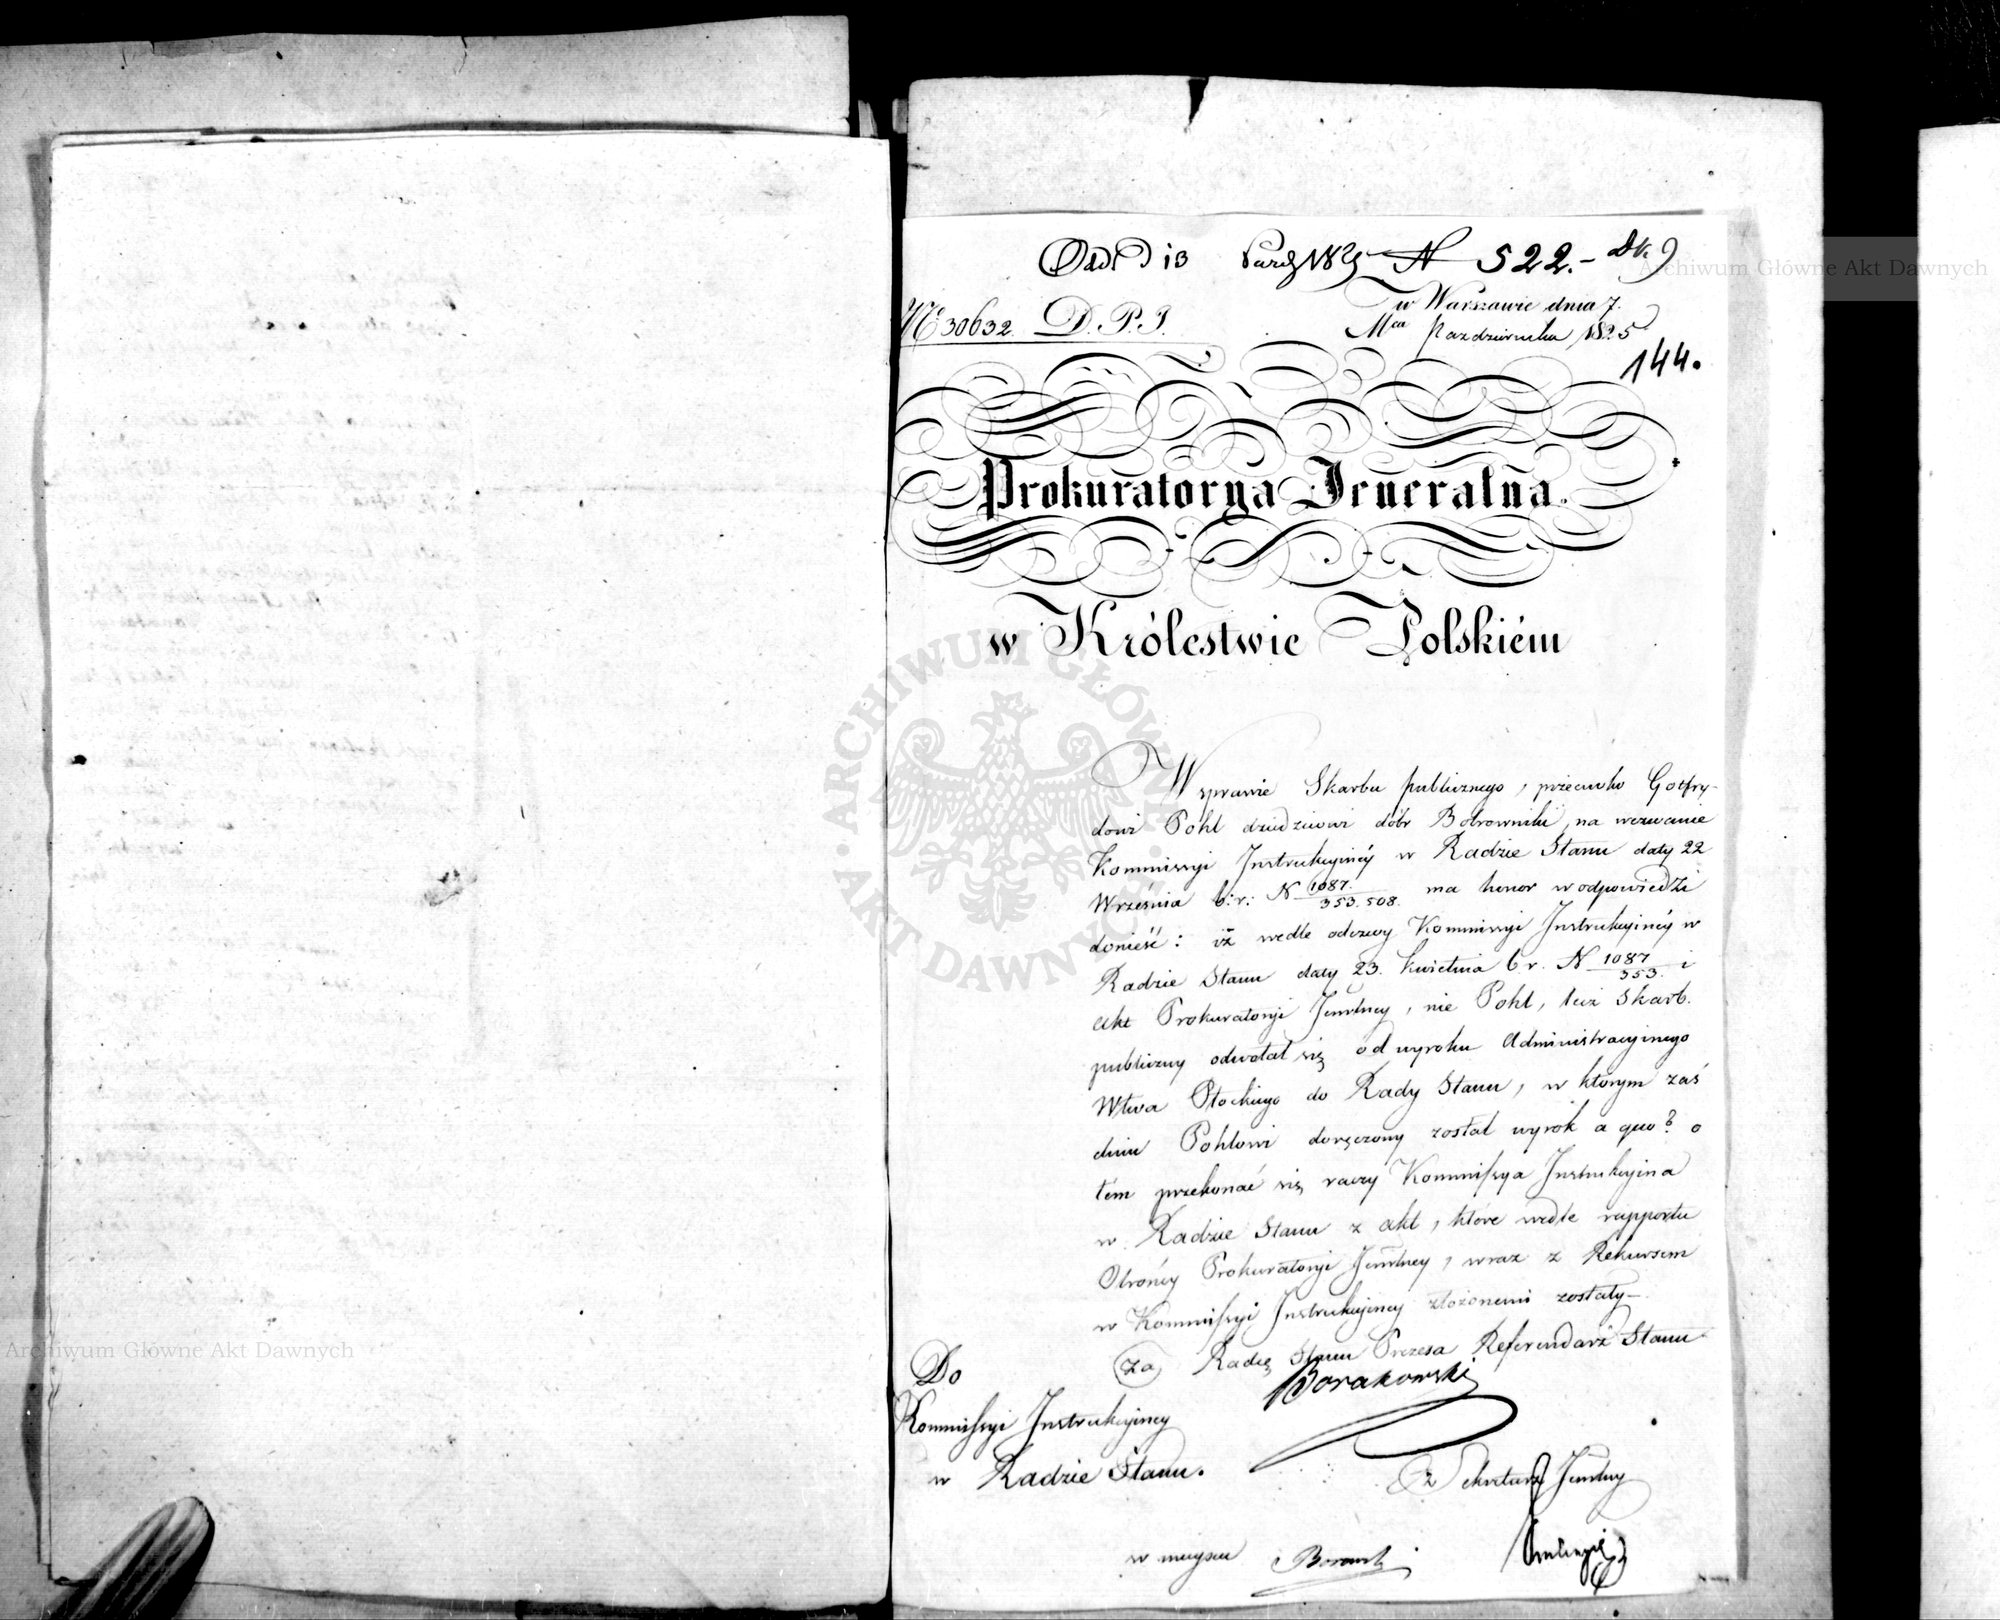 N 522.
w Warszawie dnia 7.
№ 30632. D.P.J.
Mca Pazdziernika 1825
144.
Prokuratorya Jeneralna.
w Królestwie Polskiém
W sprawie Skarbu publicznego, przeciwko Gotfry-
dowi Pohl dziedzicowi dóbr Bobrowniki, na wezwanie
Kommissyi Instrukcyinéy w Radzie Stanu daty 22
Września b: r: N 1087./353.508. ma honor w odpowiedzi
donieść: iż wedle odezwy Kommissyi Instrukcyinéy w
Radzie Stanu daty 23. Kwietnia b r. N 1087/353. i
akt Prokuratoryi Jenrlney, nie Pohl, lecz Skarb.
publiczny odwołał się od wyroku Administracyjnego
Wtwa Płockiego do Rady Stanu, w którym zaś
dniu Pohlowi doręczony został wyrok a quo? o
tém przekonać się raczy Kommissya Instrukcyina
w Radzie Stanu z akt, które wedle rapportu
Obrońcy Prokuratoryi Jenrlney, wraz z Rekursem
w Kommissyi Instrukcyiney złożonemi zostały.—
za Radcę Stanu Prezesa Referendarz Stanu
Do
Borakowski
Kommissyi Instrukcyiney
w Radzie Stanu.
z Sekretarz Jenrlny
w mieyscu
ARCHIWUM GŁÓWNE AKT DAWNYCH
Archiwum Główne Akt Dawnych
Archiwum Główne Akt Dawnych